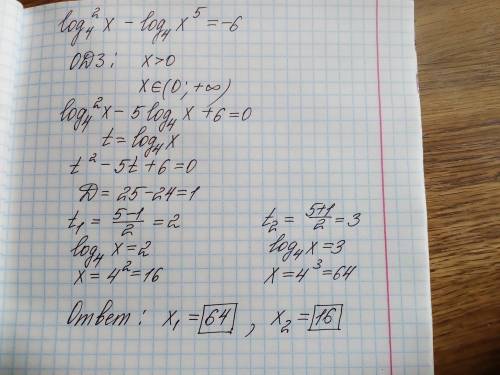 log₄²x − log₄x⁵ = −6
ОДЗ: x>0
x∈(0; +∞)
log₄²x − 5log₄x + 6 = 0
t = log₄x
t² − 5t + 6 = 0
D = 25 − 24 = 1
t₁ = (5−1)/2 = 2    t₂ = (5+1)/2 = 3
log₄x = 2    log₄x = 3
x = 4² = 16    x = 4³ = 64
Ответ: x₁ = 64, x₂ = 16